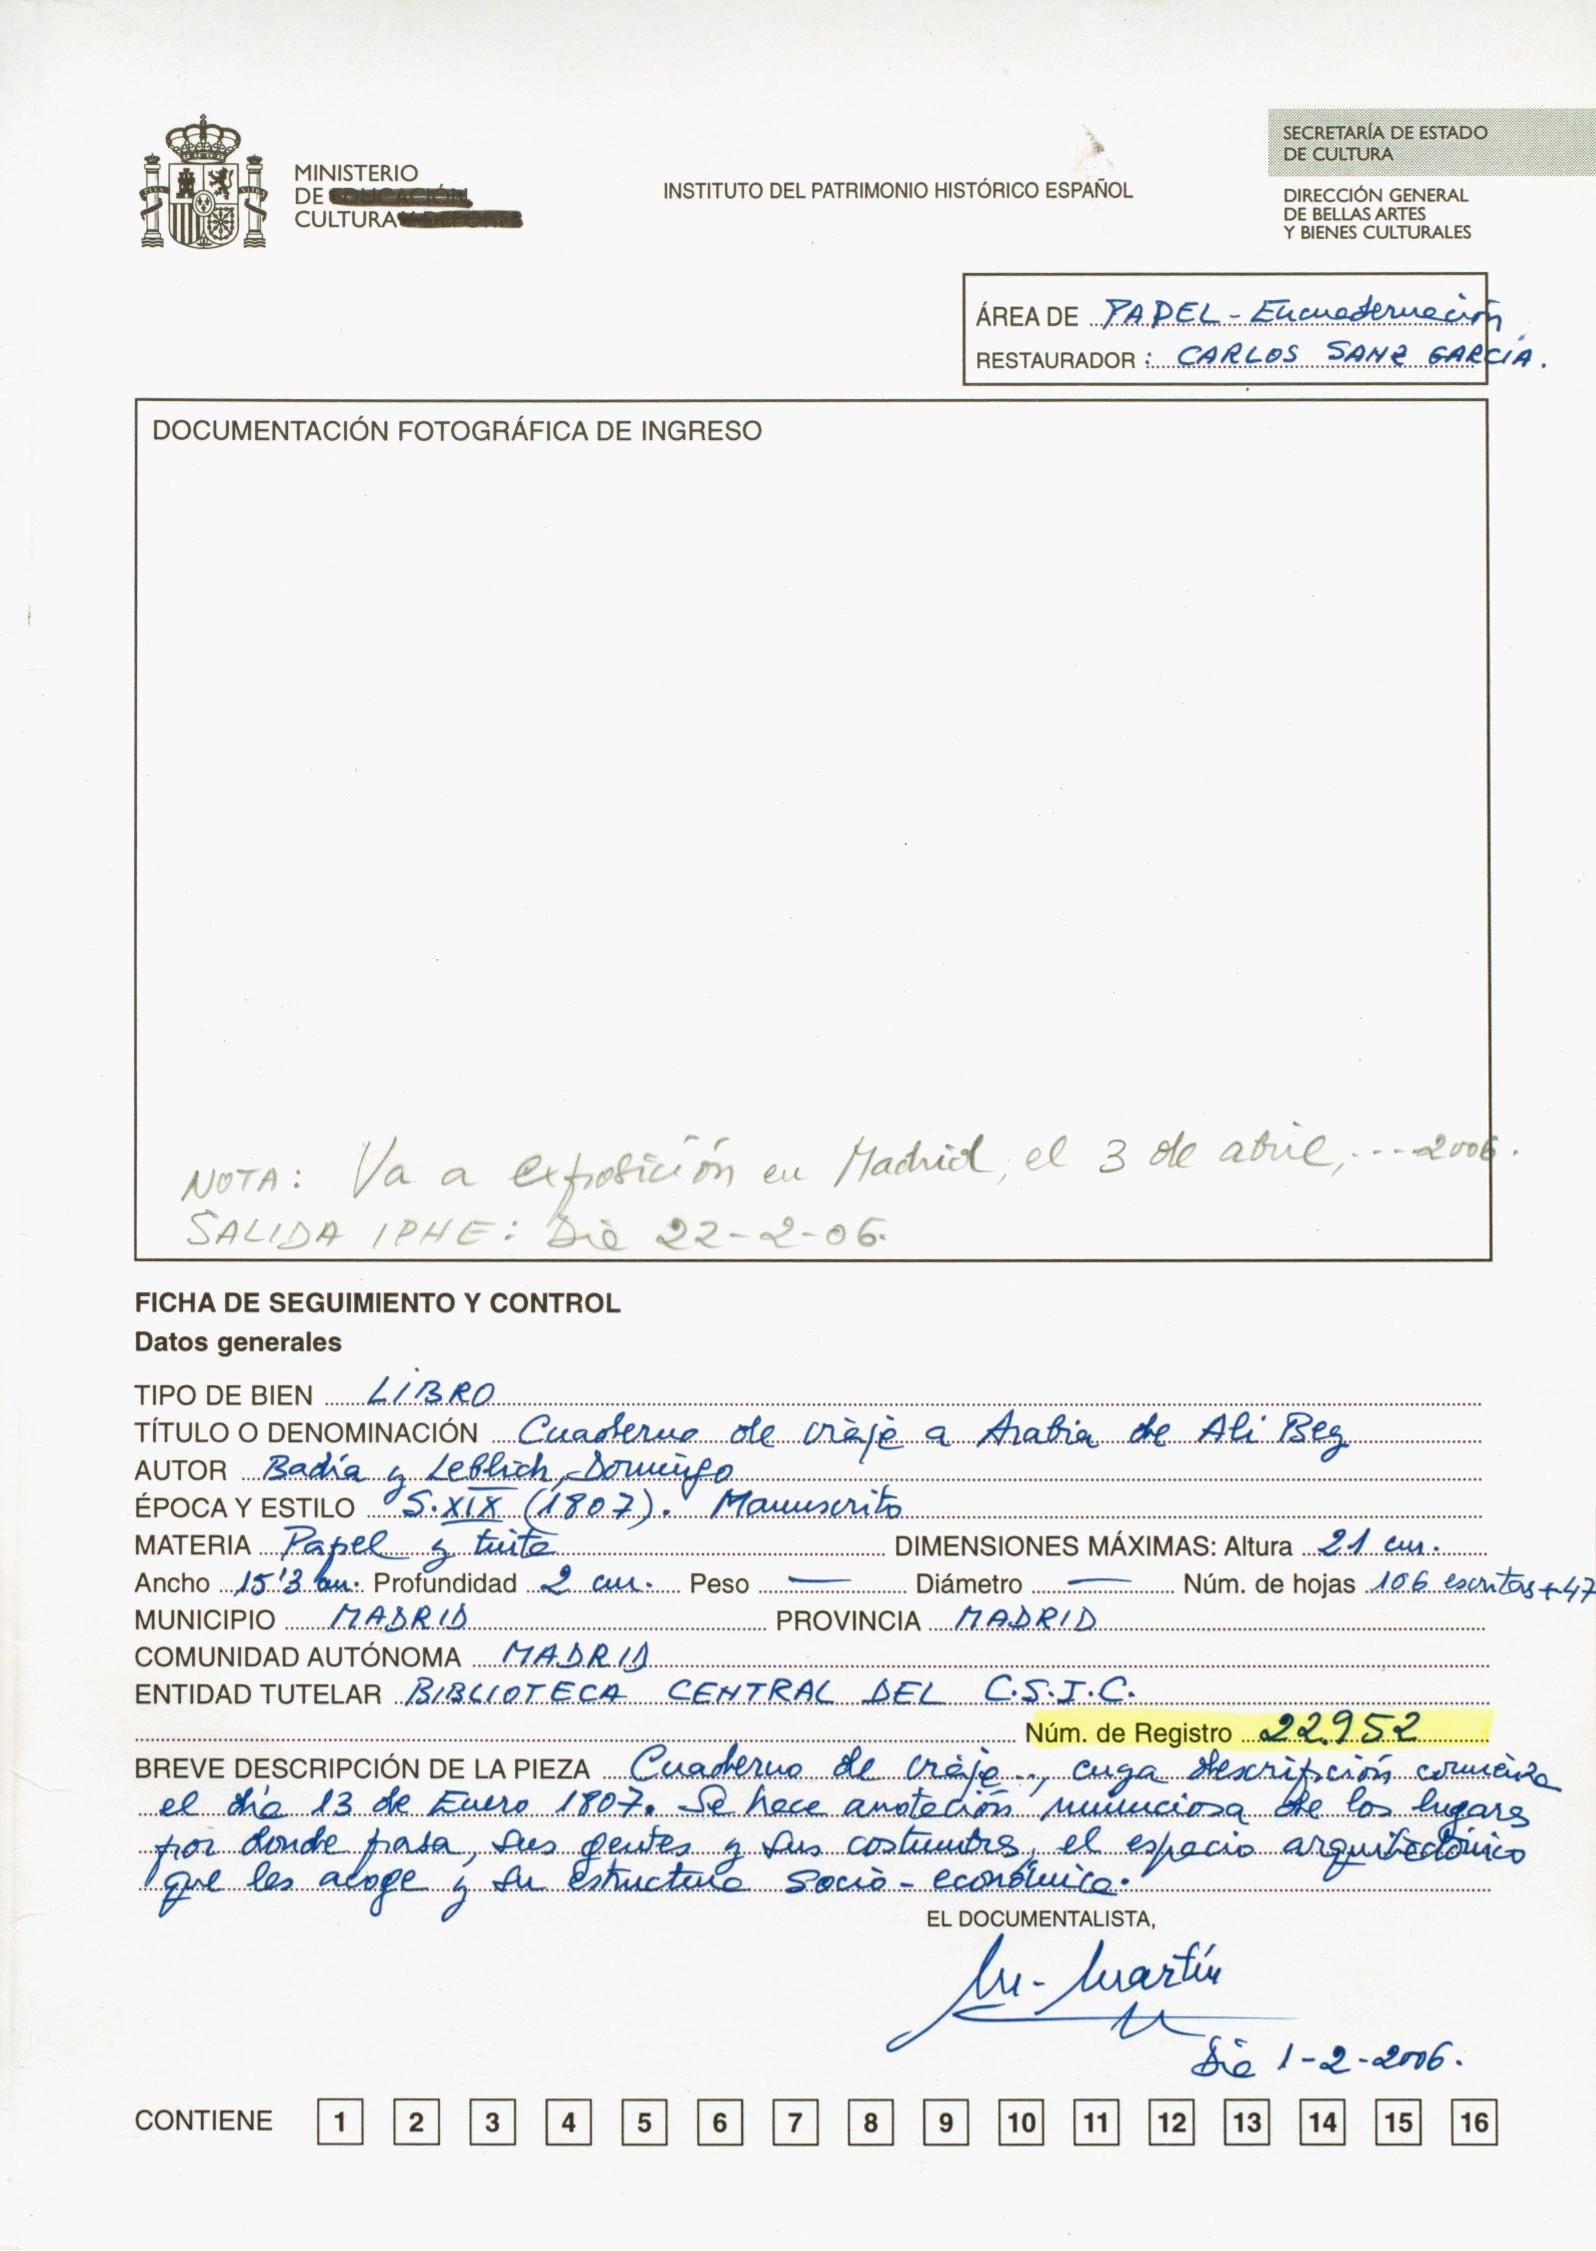 MINISTERIO
DE EDUCACIÓN,
CULTURA Y DEPORTE
INSTITUTO DEL PATRIMONIO HISTÓRICO ESPAÑOL
SECRETARÍA DE ESTADO
DE CULTURA
DIRECCIÓN GENERAL
DE BELLAS ARTES
Y BIENES CULTURALES
ÁREA DE PAPEL - Encuadernación
RESTAURADOR : CARLOS SANZ GARCÍA.
DOCUMENTACIÓN FOTOGRÁFICA DE INGRESO
NOTA: Va a exposición en Madrid, el 3 de abril, ---2006.
SALIDA IPHE: Día 22-2-06.
FICHA DE SEGUIMIENTO Y CONTROL
Datos generales
TIPO DE BIEN LIBRO
TÍTULO O DENOMINACIÓN Cuaderno de viaje a Arabia de Ali Beg
AUTOR Badía y Leblich, Domingo
ÉPOCA Y ESTILO S.XIX (1807). Manuscrito
MATERIA Papel y tinta DIMENSIONES MÁXIMAS: Altura 21 cm.
Ancho 15'3 cm. Profundidad 2 cm. Peso — Diámetro — Núm. de hojas 106 escritas +47
MUNICIPIO MADRID PROVINCIA MADRID
COMUNIDAD AUTÓNOMA MADRID
ENTIDAD TUTELAR BIBLIOTECA CENTRAL DEL C.S.I.C.
Núm. de Registro 22.952
BREVE DESCRIPCIÓN DE LA PIEZA Cuaderno de viaje.., cuya descripción comienza
el día 13 de Enero 1807. Se hace anotación minuciosa de los lugares
por donde pasa, sus gentes y sus costumbres, el espacio arquitectónico
que les acoge y su estructura socio-económica.
EL DOCUMENTALISTA,
M. Martín
Día 1-2-2006.
CONTIENE 1 2 3 4 5 6 7 8 9 10 11 12 13 14 15 16